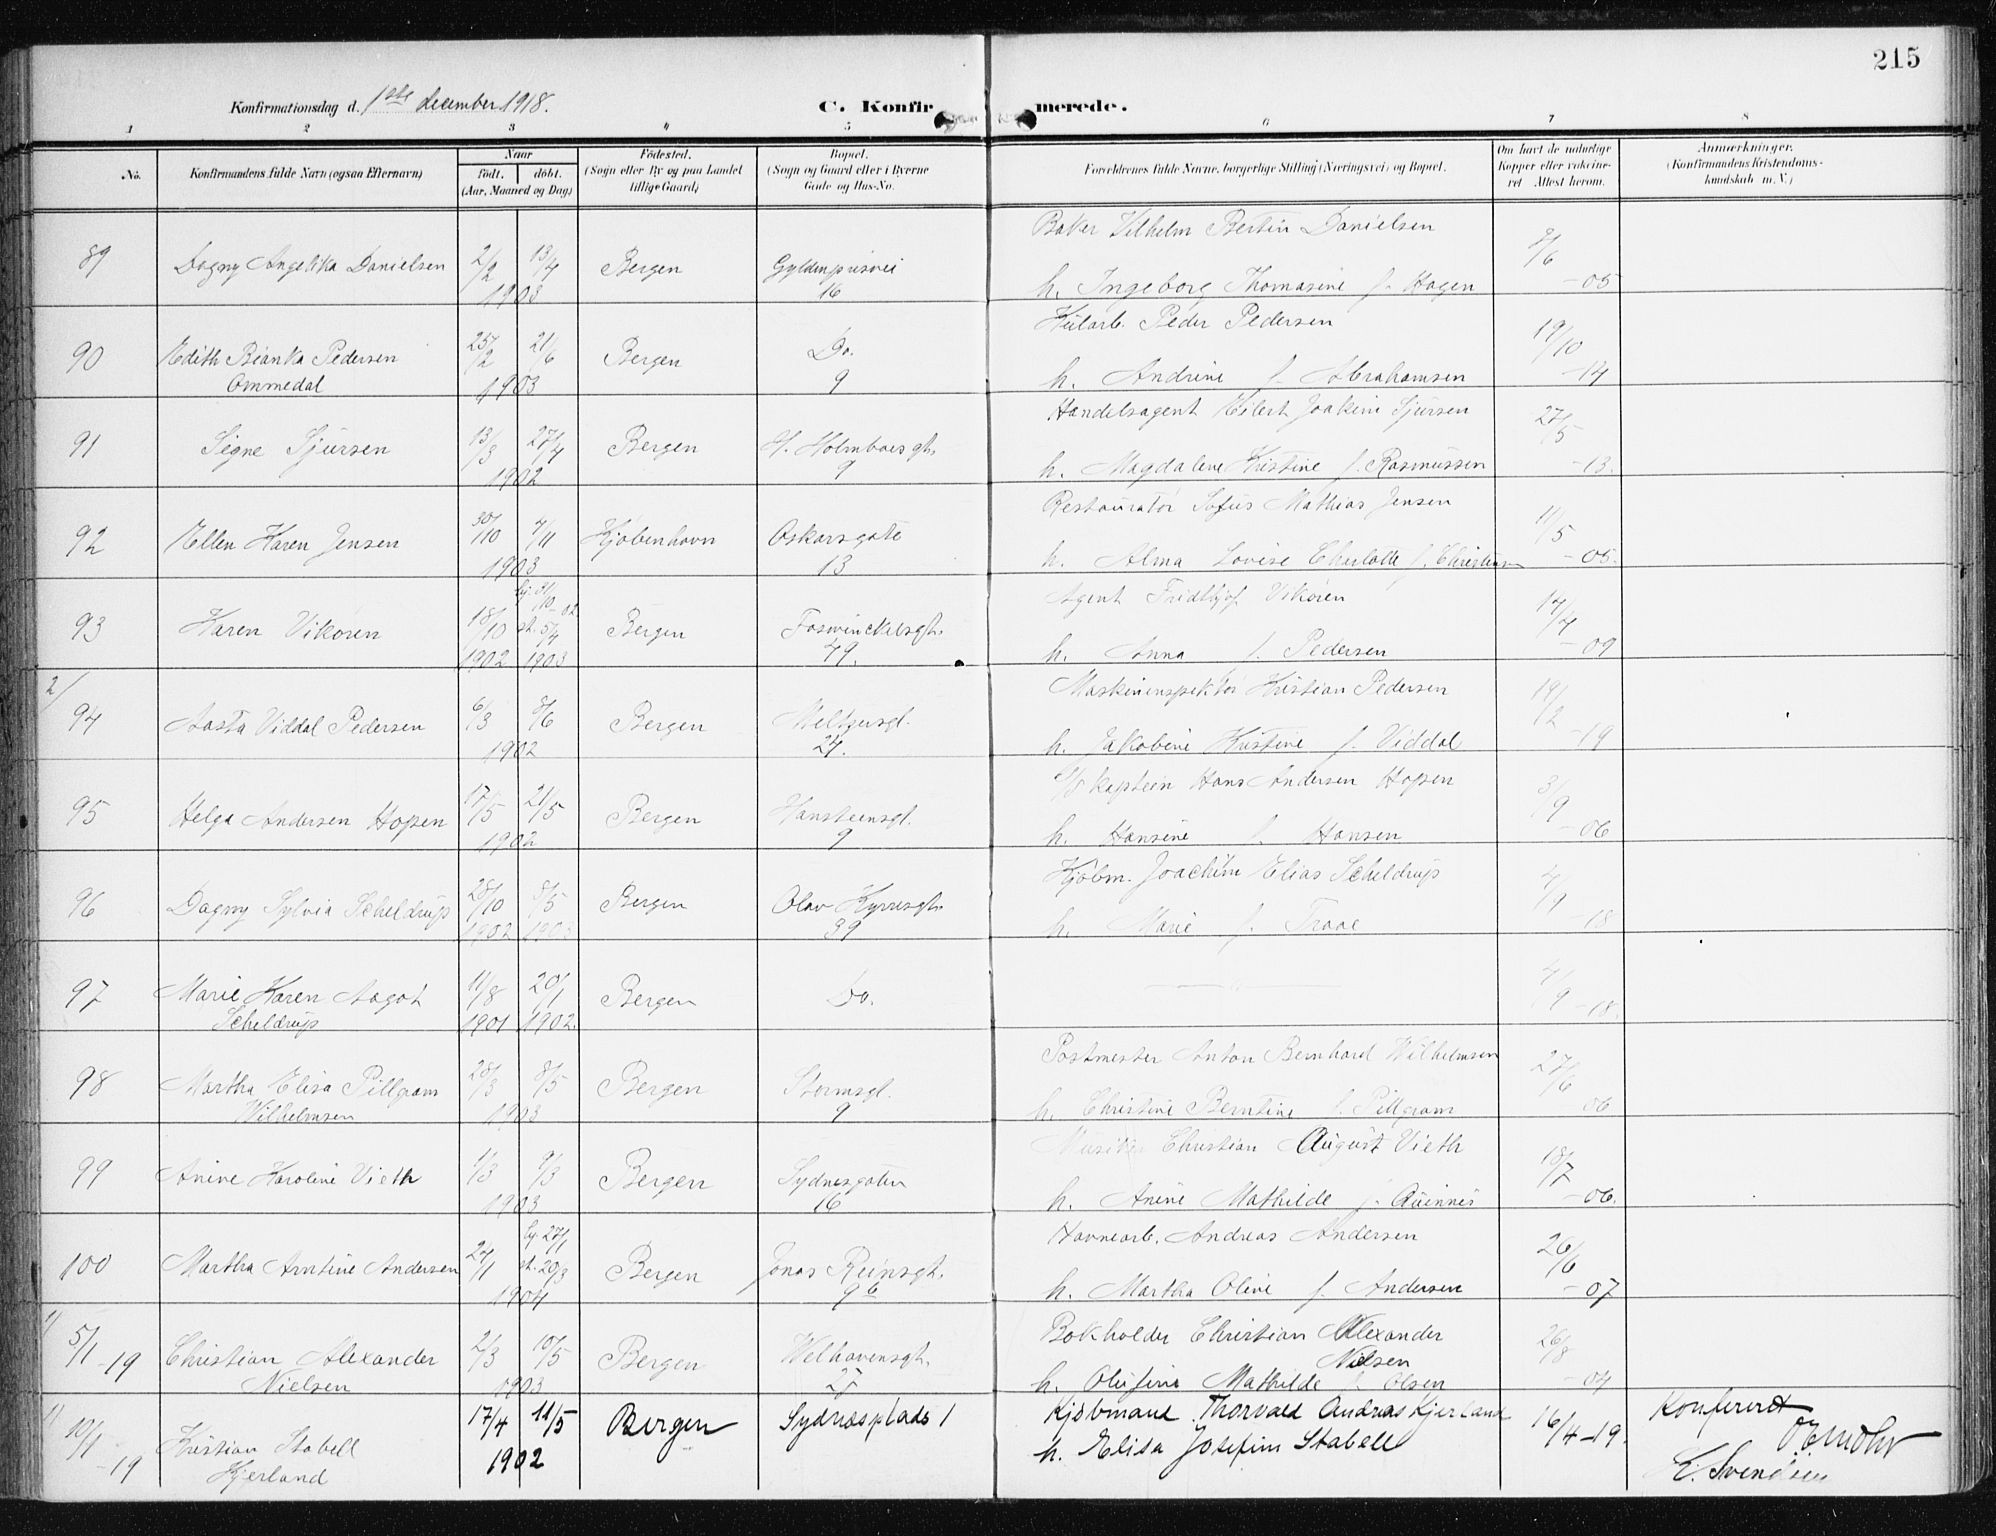 215
Konfirmationsdag d. 1ste december 1918.
C. Konfirmerede.
1 2 3 " 5 6 7 8
No.
Konfirmandens fulde Navn (ogsaa Efternavn)
Naar
født. døbt.
(Aar, Maaned og Dag)
Fødested.
(Sogn eller By og paa Landet
tillige Gaard)
Bopæl.
(Sogn og Gaard eller i Byerne
Gade og Hus-No.
Forældrenes fulde Navne, borgerlige Stilling (Næringsvei) og Bopæl.
Om havt de naturlige
Kopper eller vakcine-
ret. Attest herom.
Anmærkninger.
(Konfirmandens Kristendoms-
kundskab m. V.)
Baker Vilhelm Bertin Danielsen
89 Dagny Angelika Danielsen 2/2 13/4 Bergen Gyldenprisvei 9/6
1903 16 h. Ingeborg Thomasine f. Hagen -05
Kularb. Peder Pedersen
90 Edith Bianka Pedersen 25/2 21/6 Bergen Do. 19/10
Ommedal 1903 9 h. Andrine f. Abrahamsen -14
Handelsagent Eilert Joakim Sjursen
91 Signe Sjursen 13/3 27/4 Bergen H. Holmboesgt. 27/5
1902 9 h. Magdalene Kristine f. Rasmussen -13.
Restauratør Sofus Mathias Jensen
92 Ellen Karen Jensen 30/10 4/11 Kjøbenhavn Oskarsgate 11/5
1903 13 h. Alma Lovise Charlotte f. Christensen -05.
hj. 31/10-02. Agent Fridthjof Vikøren
93 Karen Vikøren 18/10 st. 5/4 Bergen Fosswinckelsgt. 14/4
1902 1903 49. h. Anna f. Pedersen -09
2/ Maskininspektør Kristian Pedersen
94 Aasta Viddal Pedersen 6/3 8/6 Bergen Meltzersgt. 19/2
1902 24. h. Jakobine Kristine f. Viddal -19
D/S kaptein Hans Andersen Hopen
95 Helga Andersen Hopen 17/5 21/5 Bergen Hansteensgt. 3/9
1902 9 h. Hansine f. Hansen -06
Kjøbm. Joachim Elias Scheldrup
96 Dagny Sylvia Scheldrup 28/10 8/5 Bergen Olav Kyrresgt. 4/9
1902 1903 39 h. Marie f. Traae -18
97 Marie Karen Aagot 11/8 20/1 Bergen Do. — " — 4/9
Scheldrup 1901 1902. -18.
Postmester Anton Bernhard Wilhelmsen
98 Martha Elisa Pillgram 28/3 8/5 Bergen Stormsgt. 27/6
Wilhelmsen 1903 9 h. Christine Berntine f. Pillgram 06
Musiker Christian August Vieth
99 Anine Karoline Vieth 1/3 9/3 Bergen Sydnesgaten 18/7
1903 16 h. Anine Mathilde f. -06.
hj. 27/1 Havnearb. Andreas Andersen
100 Martha Arntine Andersen 24/1 st. 20/3 Bergen Jonas Reinsgt. 26/6
1904 9b h. Martha Oline f. Andersen -07
1/ Bokholder Christian Alexander
5/1-19 Christian Alexander 2/3 10/5 Bergen Welhavensgt. Nielsen 26/8
Nielsen 1903 27 h. Olufine Mathilde f. Olsen -04
1/ 17/4 11/5 Bergen Sydnæsplads 1 Kjøbmand Thorvald Andreas Kjerland 16/4-19. Konfereret
10/1-19 Kristian Stabell 1902 h. Elisa Josefine Stabell
Kjerland E. Svendsen